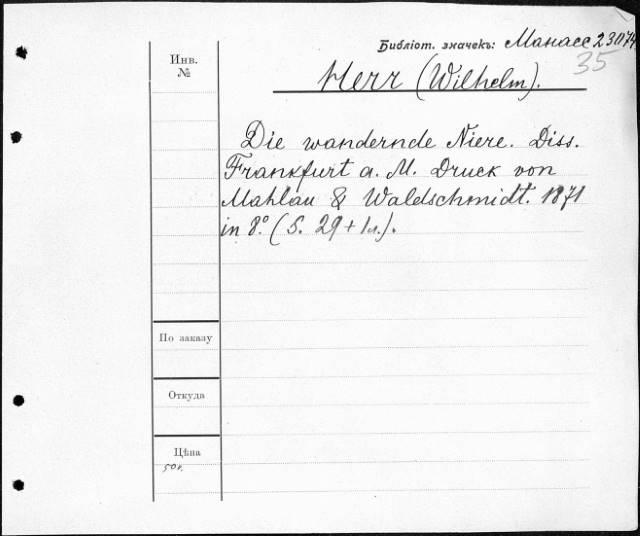 Библіот. значекъ: Манасс 23074
35
Инв.
№
Herr (Wilhelm).
Die wandernde Niere. Diss.
Frankfurt a. M. Druck von
Mahlau & Waldschmidt. 1871
in 8º. (S. 29 + 1 л.).
По заказу
Откуда
Цѣна
50к.